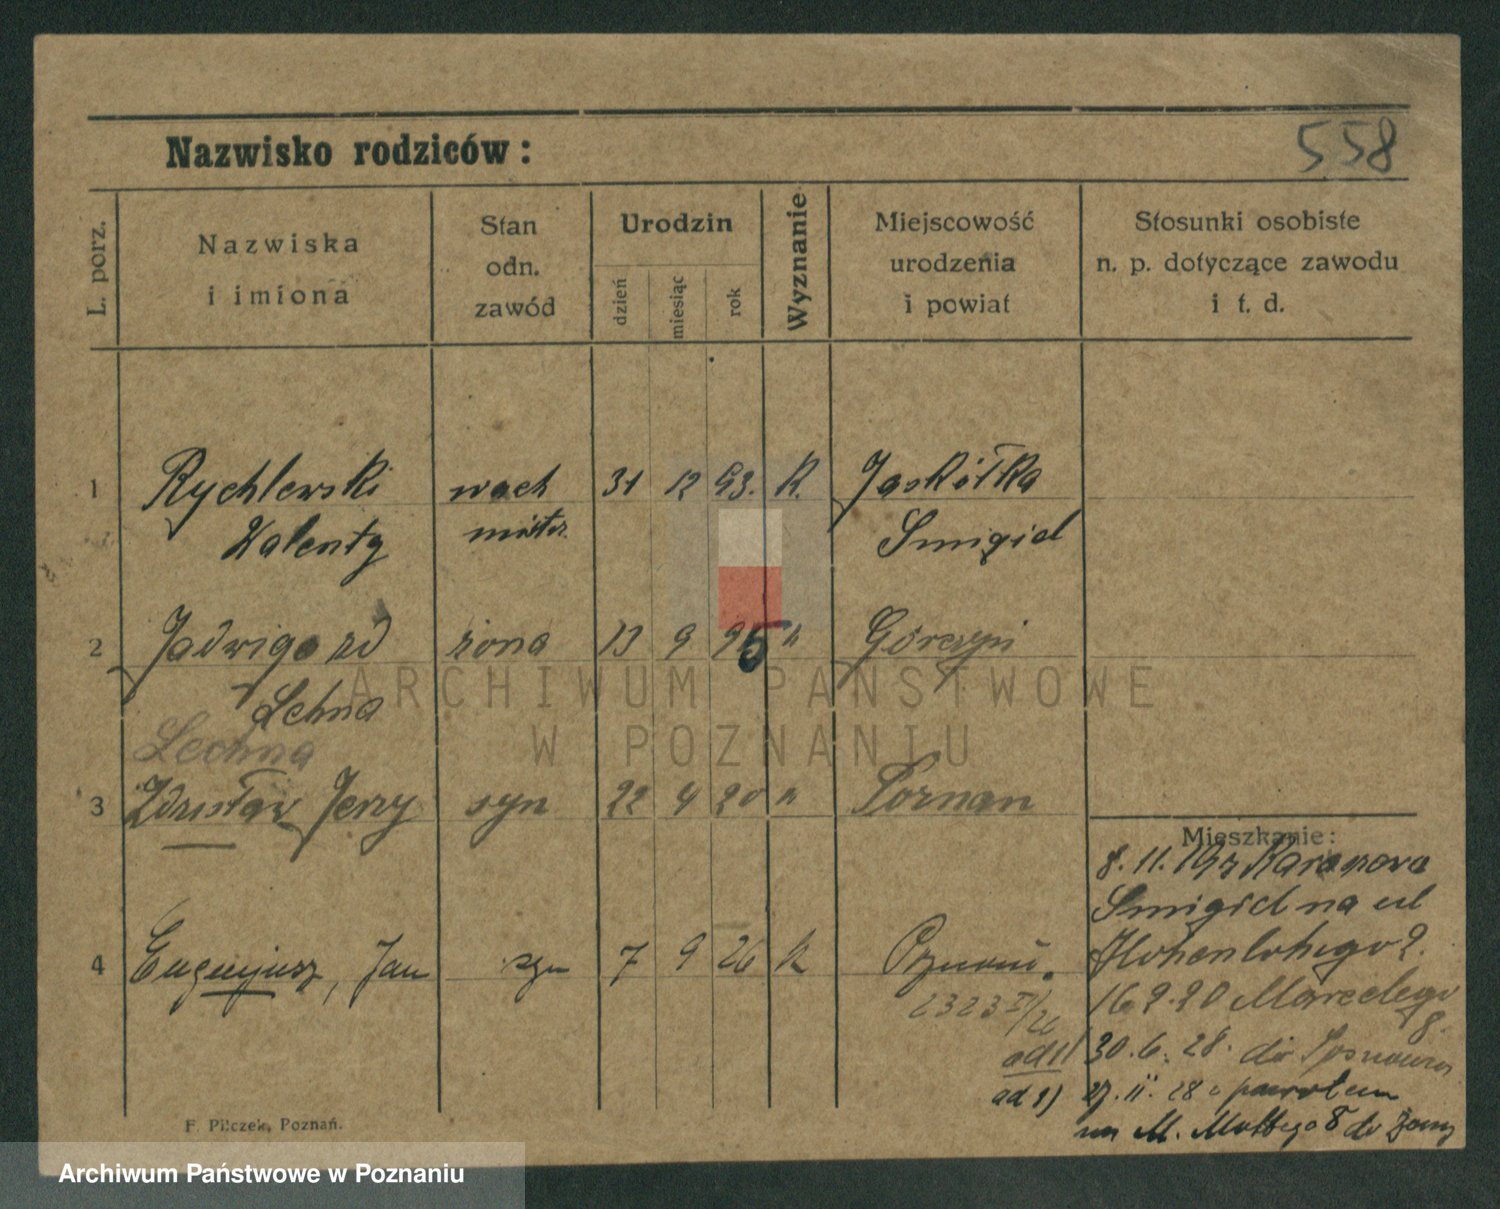 Nazwisko rodziców:
558
L. porz.
Nazwiska
i imiona
Stan
odn.
zawód
Urodzin
dzień
miesiąc
rok
Wyznanie
Miejscowość
urodzenia
i powiat
Stosunki osobiste
n. p. dotyczące zawodu
i t. d.
1 Rychlewski wach 31 12 93. K. Jaskółka
Walenty mistrz. Smigiel
2 Jadwiga zd żona 13 9 95 " Górczyn
Lehna
Lechna
3 Zdzisław Jerzy syn 22 4 20 " Poznan
Mieszkanie:
8. 11. 19 z
Smigiel na ul
4 Eugenjusz, Jan syn 7 9 26 k Poznań.
Hohenlohego 2.
2323 /26
16 2. 20 Marcelego
8.
ad 1) 30. 6. 28. do Sosnowca
ad 1) 27. 11. 28 z powrotem
na M. Mottego 8 do żony
F. Pilczek, Poznań.
ARCHIWUM PAŃSTWOWE
W POZNANIU
Archiwum Państwowe w Poznaniu